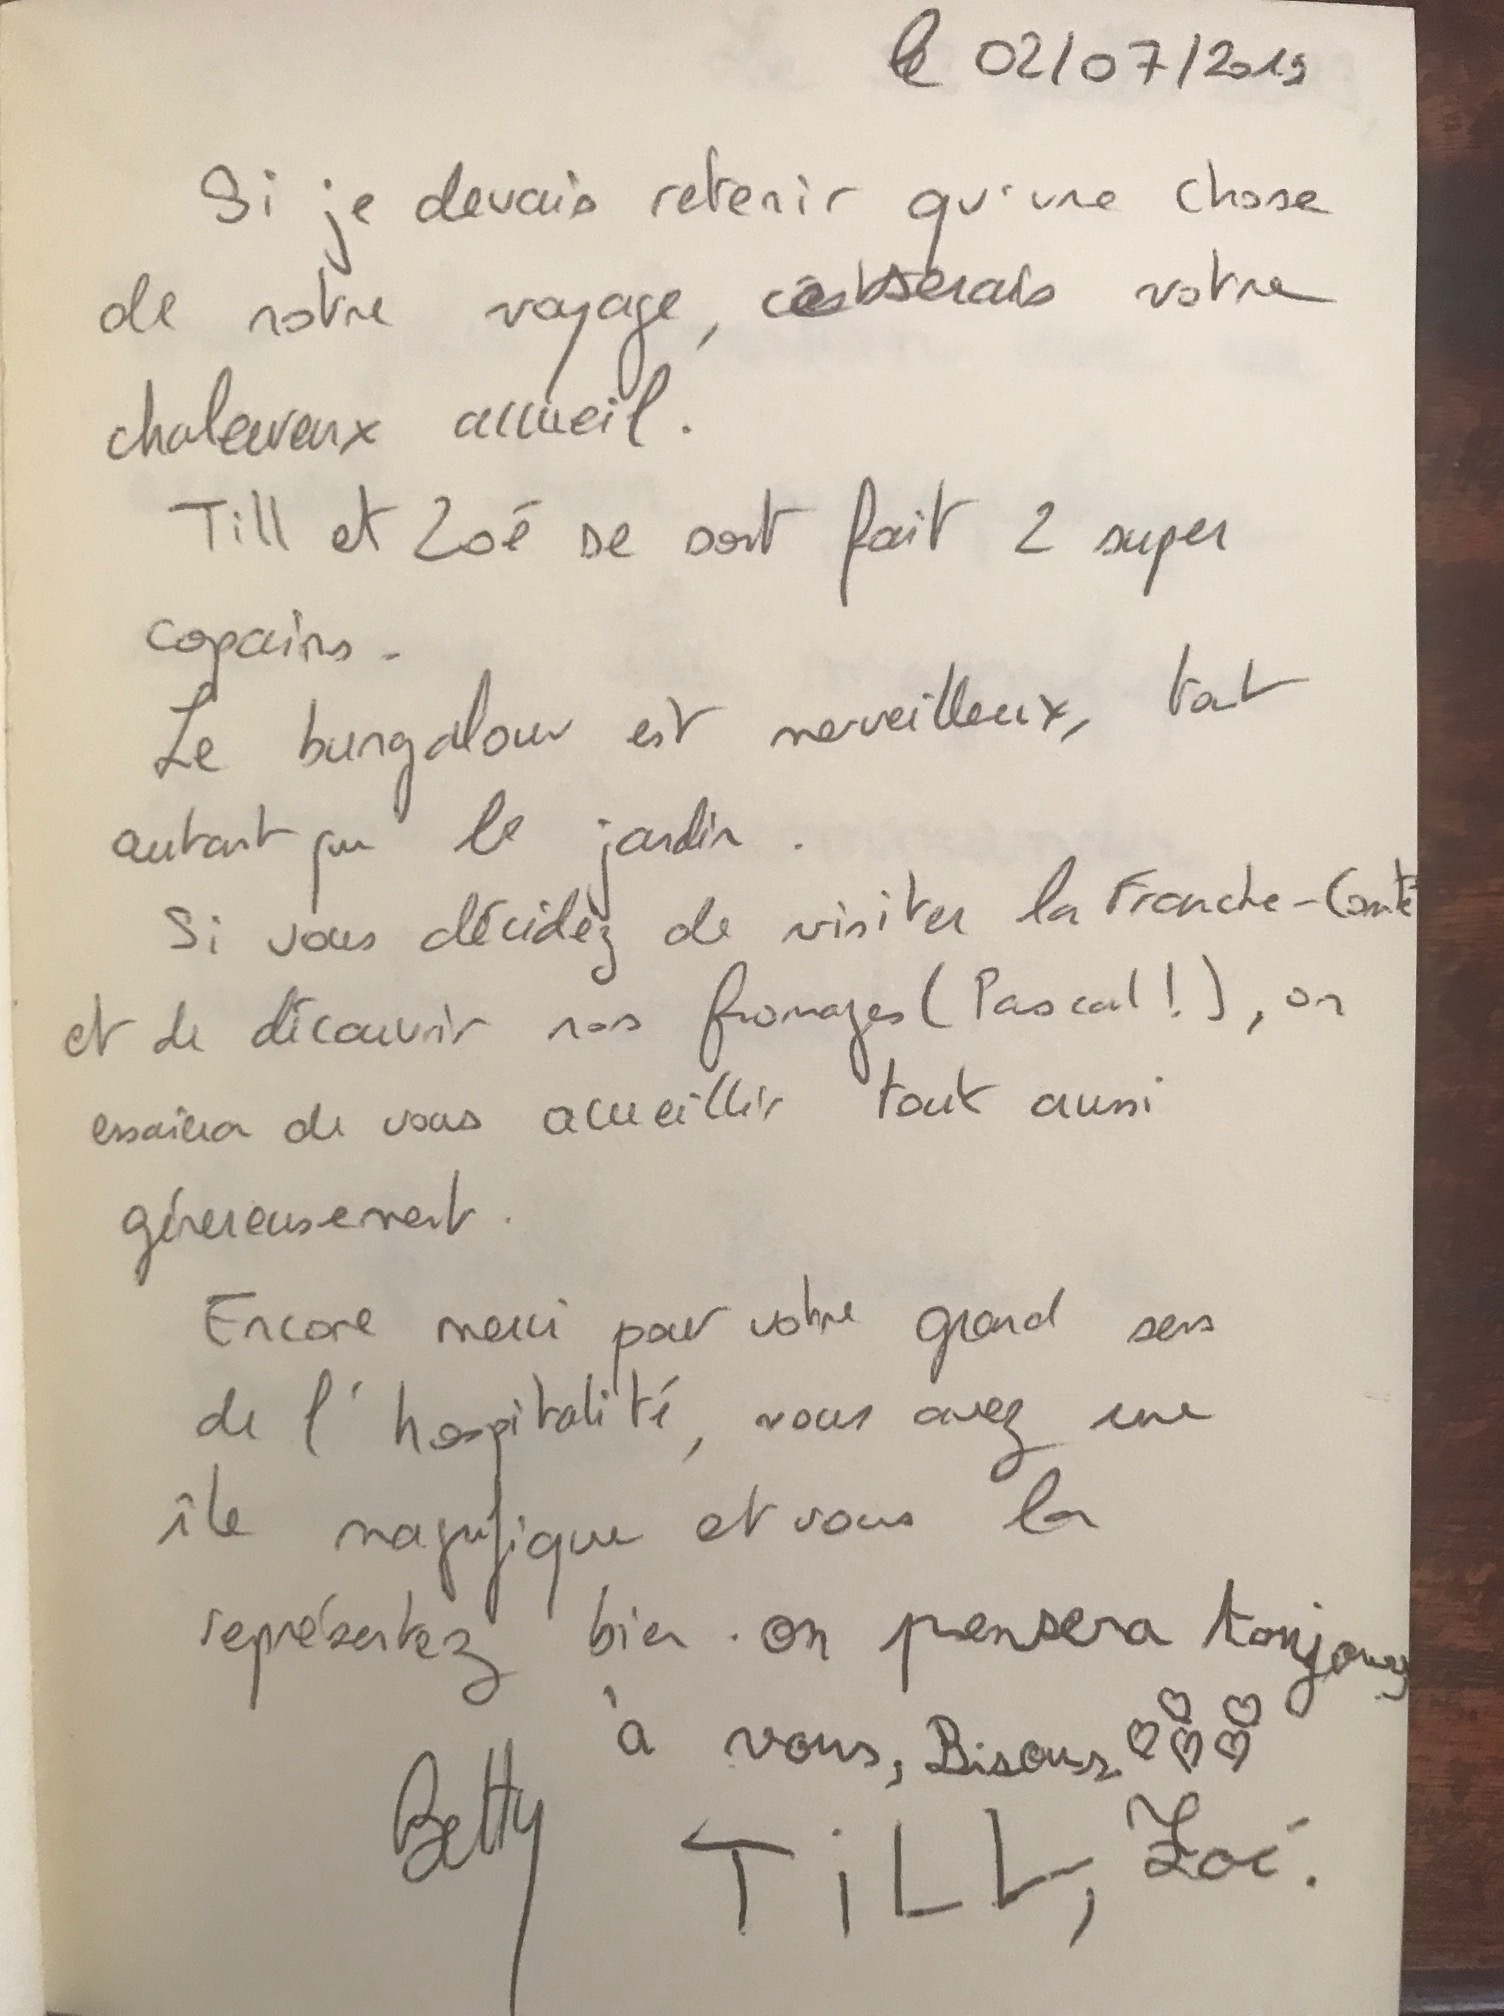 le 02/07/2019
Si je devais retenir qu'une chose
de notre voyage, serais votre
chaleureux accueil.
Till et Zoé se sont fait 2 super
copains.
Le bungalow est merveilleux, tout
autant que le jardin.
Si vous décidez de visiter la Franche-Comté
et de découvrir nos fromages (Pascal!), on
essaiera de vous acueillir tout aussi
génereusement.
Encore merci pour votre grand sens
de l'hospitalité, vous avez une
île magnifique et vous la
représentez bien. on pensera toujours
à vous, Bisous ♡♡♡♡♡
Betty TiLL, Zoé.